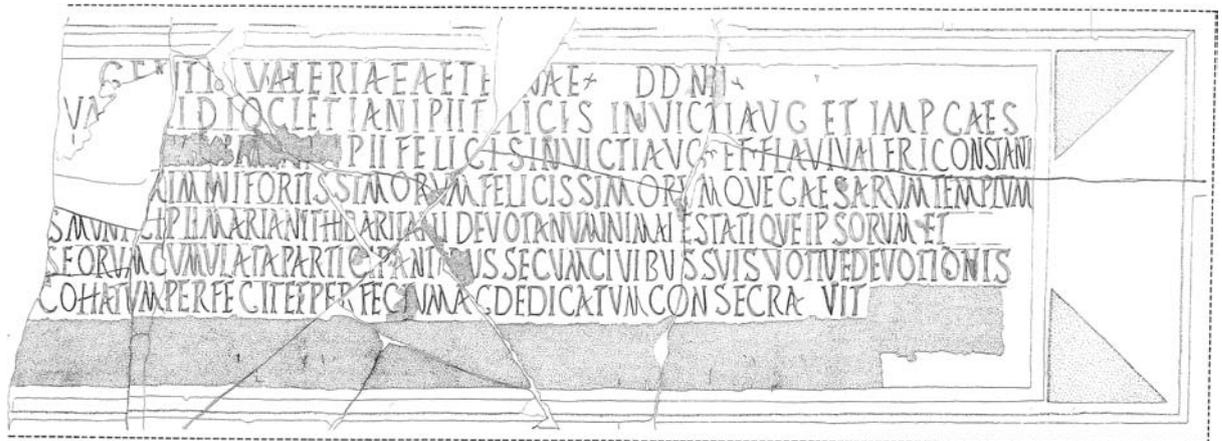 GENTI VALERIAEAETE NAE DDNN
I DIOCLETIANIPIIFELICIS INVICTIAVG ET IMP CAES
PIIFELICISINVICTIAVG ET FLAVIVALERICONSTANI
XIMIANIFORTISSIMORVMFELICISSIMORVMQVECAESARVMTEMPLVM
SMVNICIPIIMARIANITHIBARITANIDEVOTANVMINIMAIESTATIQVEIPSORVMET
SEORVMCVMVLATAPARTICIPANTIBVSSECVMCIVIBVSSVISVOTIVEDEVOTIONIS
COHATVMPERFECITETPERFECTVMACDEDICATVMCONSECRA VIT